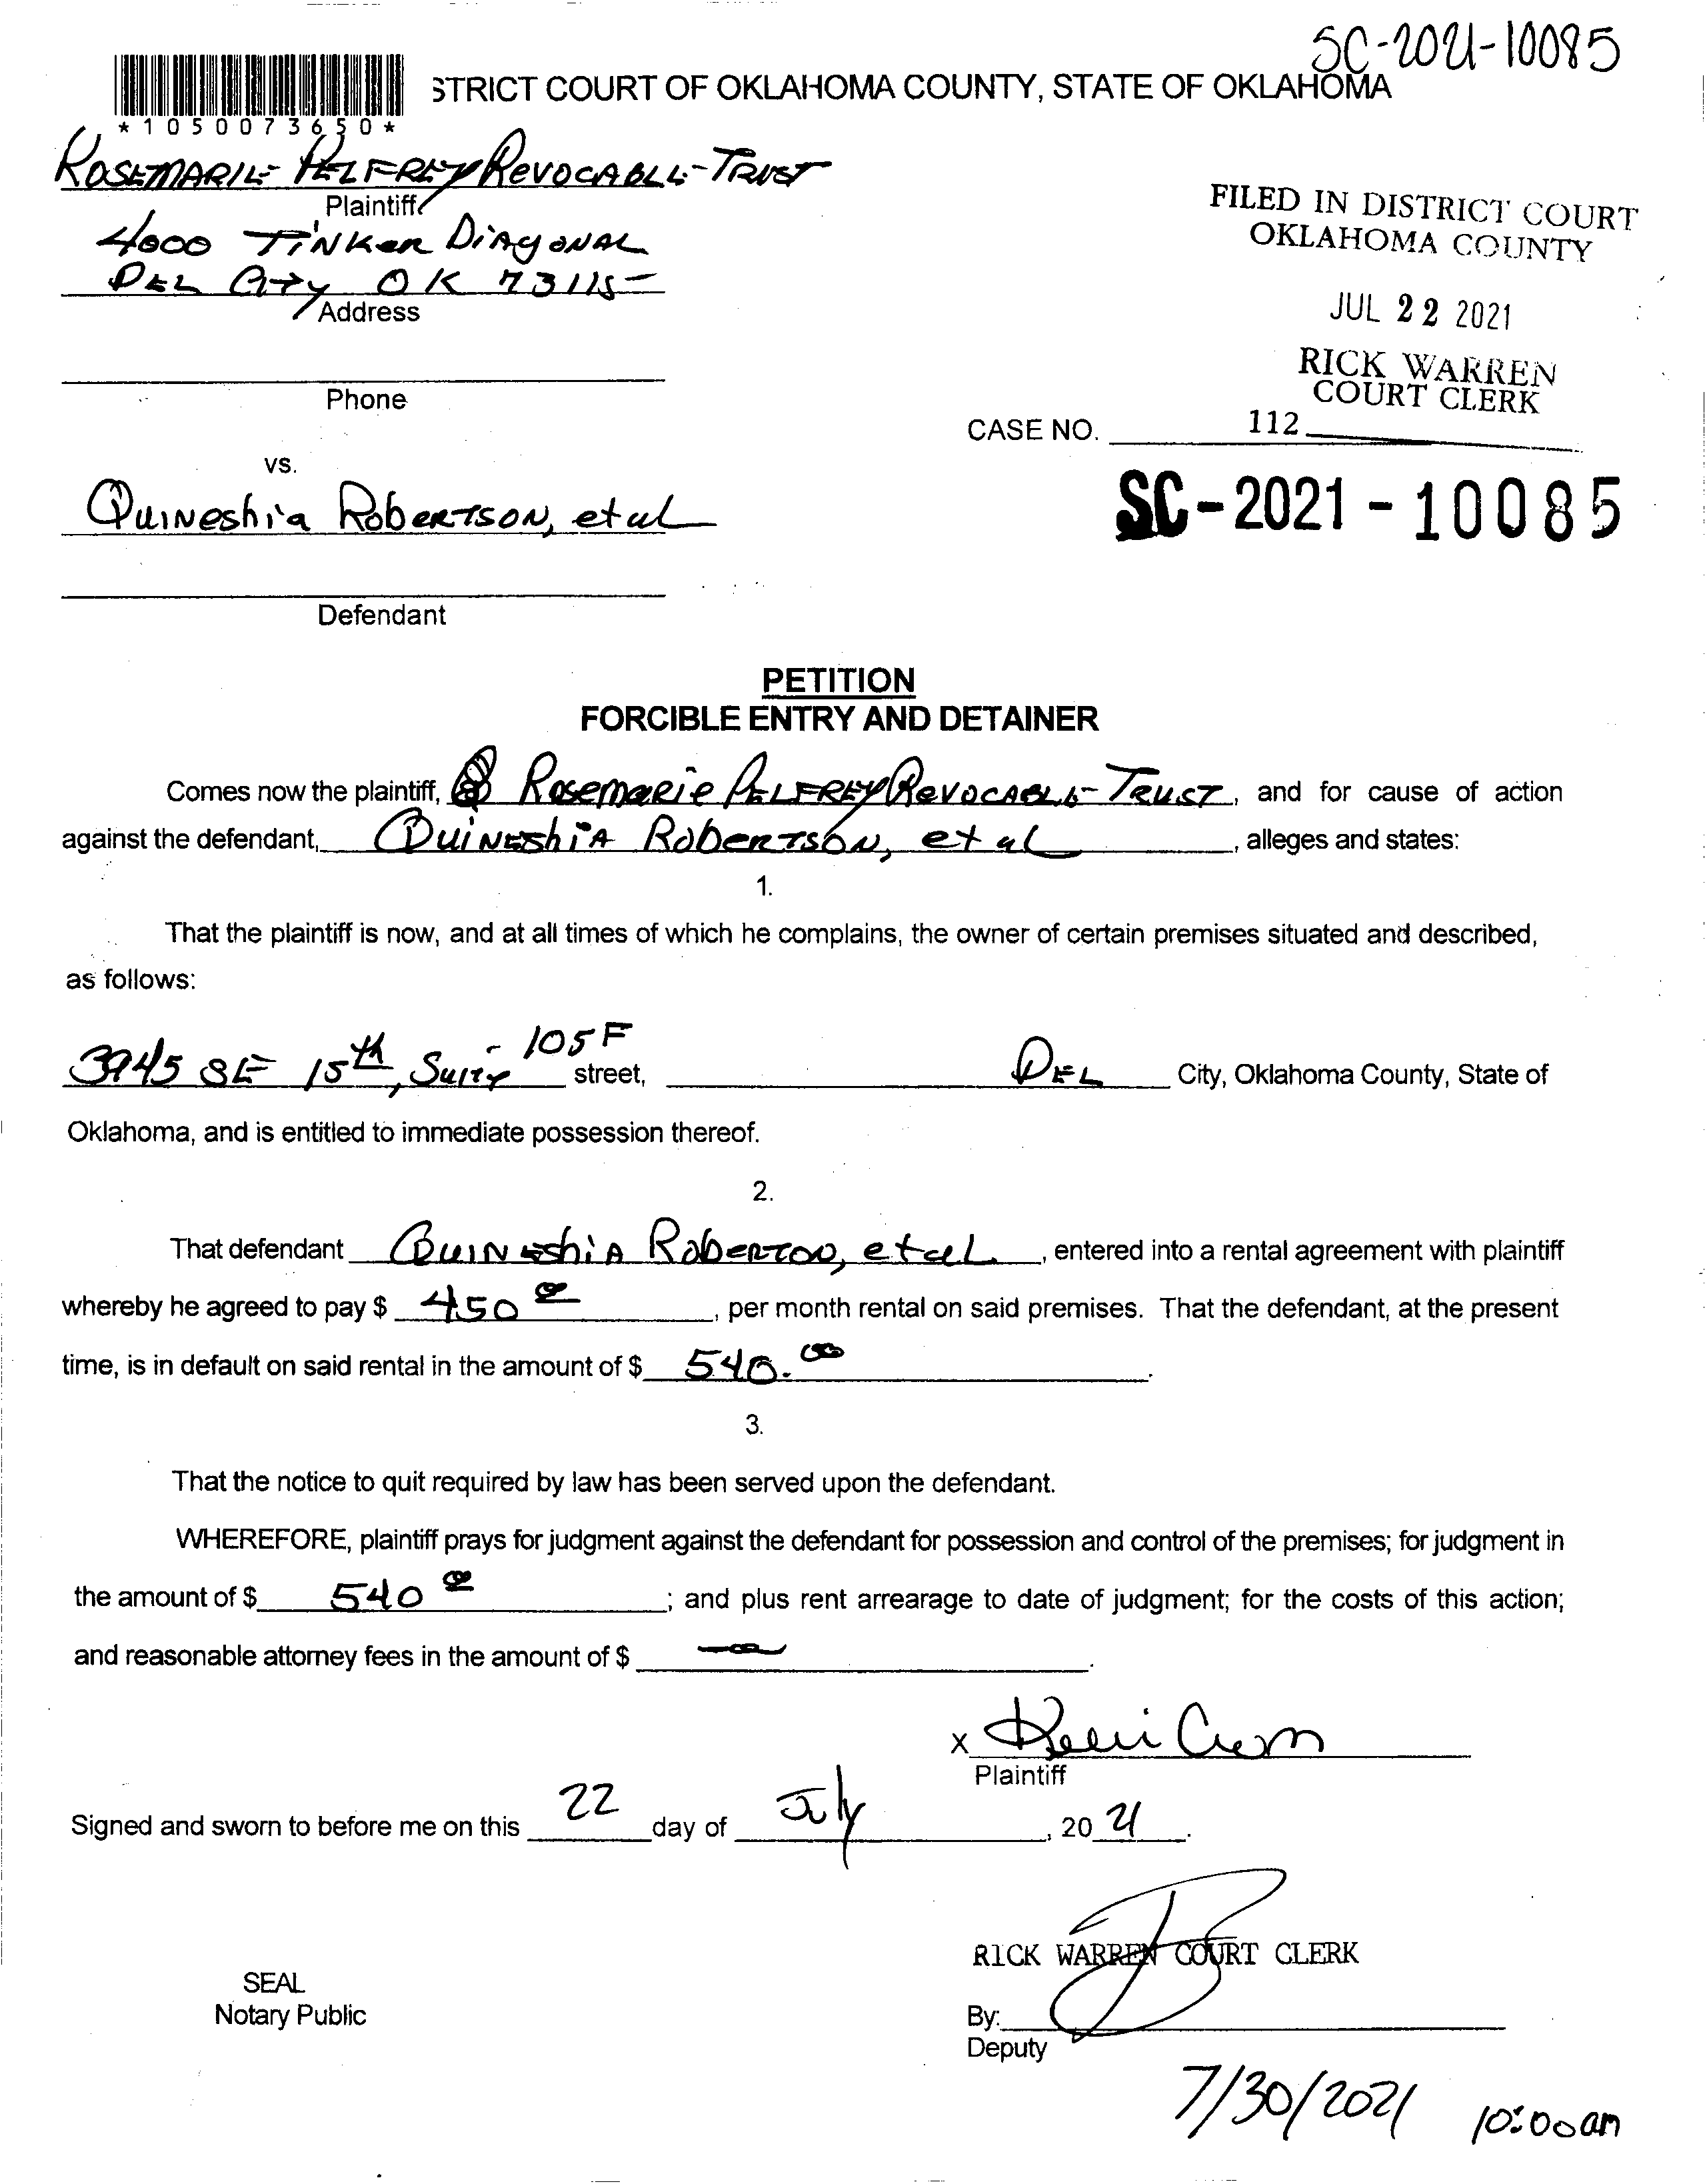 SC-2021-10085
STRICT COURT OF OKLAHOMA COUNTY, STATE OF OKLAHOMA
*1050073650*
ROSEMARIE PELFREY REVOCABLE TRUST
Plaintiff
4000 TINKER DIAGONAL
DEL CITY OK 73115
Address
FILED IN DISTRICT COURT
OKLAHOMA COUNTY
JUL 22 2021
RICK WARREN
COURT CLERK
Phone
CASE NO. 112
vs.
SC-2021-10085
Quineshia Robertson, et al
Defendant
PETITION
FORCIBLE ENTRY AND DETAINER
Comes now the plaintiff, Rosemarie Pelfrey Revocable Trust, and for cause of action
against the defendant, Quineshia Robertson, et al, alleges and states:
1.
That the plaintiff is now, and at all times of which he complains, the owner of certain premises situated and described,
as follows:
3945 SE 15th, Suite 105F street, DEL City, Oklahoma County, State of
Oklahoma, and is entitled to immediate possession thereof.
2.
That defendant Quineshia Roberton, et al, entered into a rental agreement with plaintiff
whereby he agreed to pay $ 450 00, per month rental on said premises. That the defendant, at the present
time, is in default on said rental in the amount of $ 540.00.
3.
That the notice to quit required by law has been served upon the defendant.
WHEREFORE, plaintiff prays for judgment against the defendant for possession and control of the premises; for judgment in
the amount of $ 540 00; and plus rent arrearage to date of judgment; for the costs of this action;
and reasonable attorney fees in the amount of $
X
Plaintiff
Signed and sworn to before me on this 22 day of July, 2021.
RICK WARREN COURT CLERK
SEAL
Notary Public
By:
Deputy
7/30/2021 10:00am